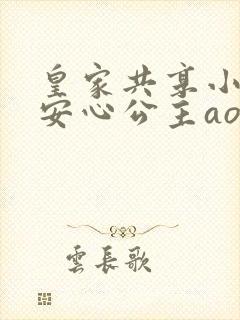 皇家共享小
安心公主ao
雲長歌